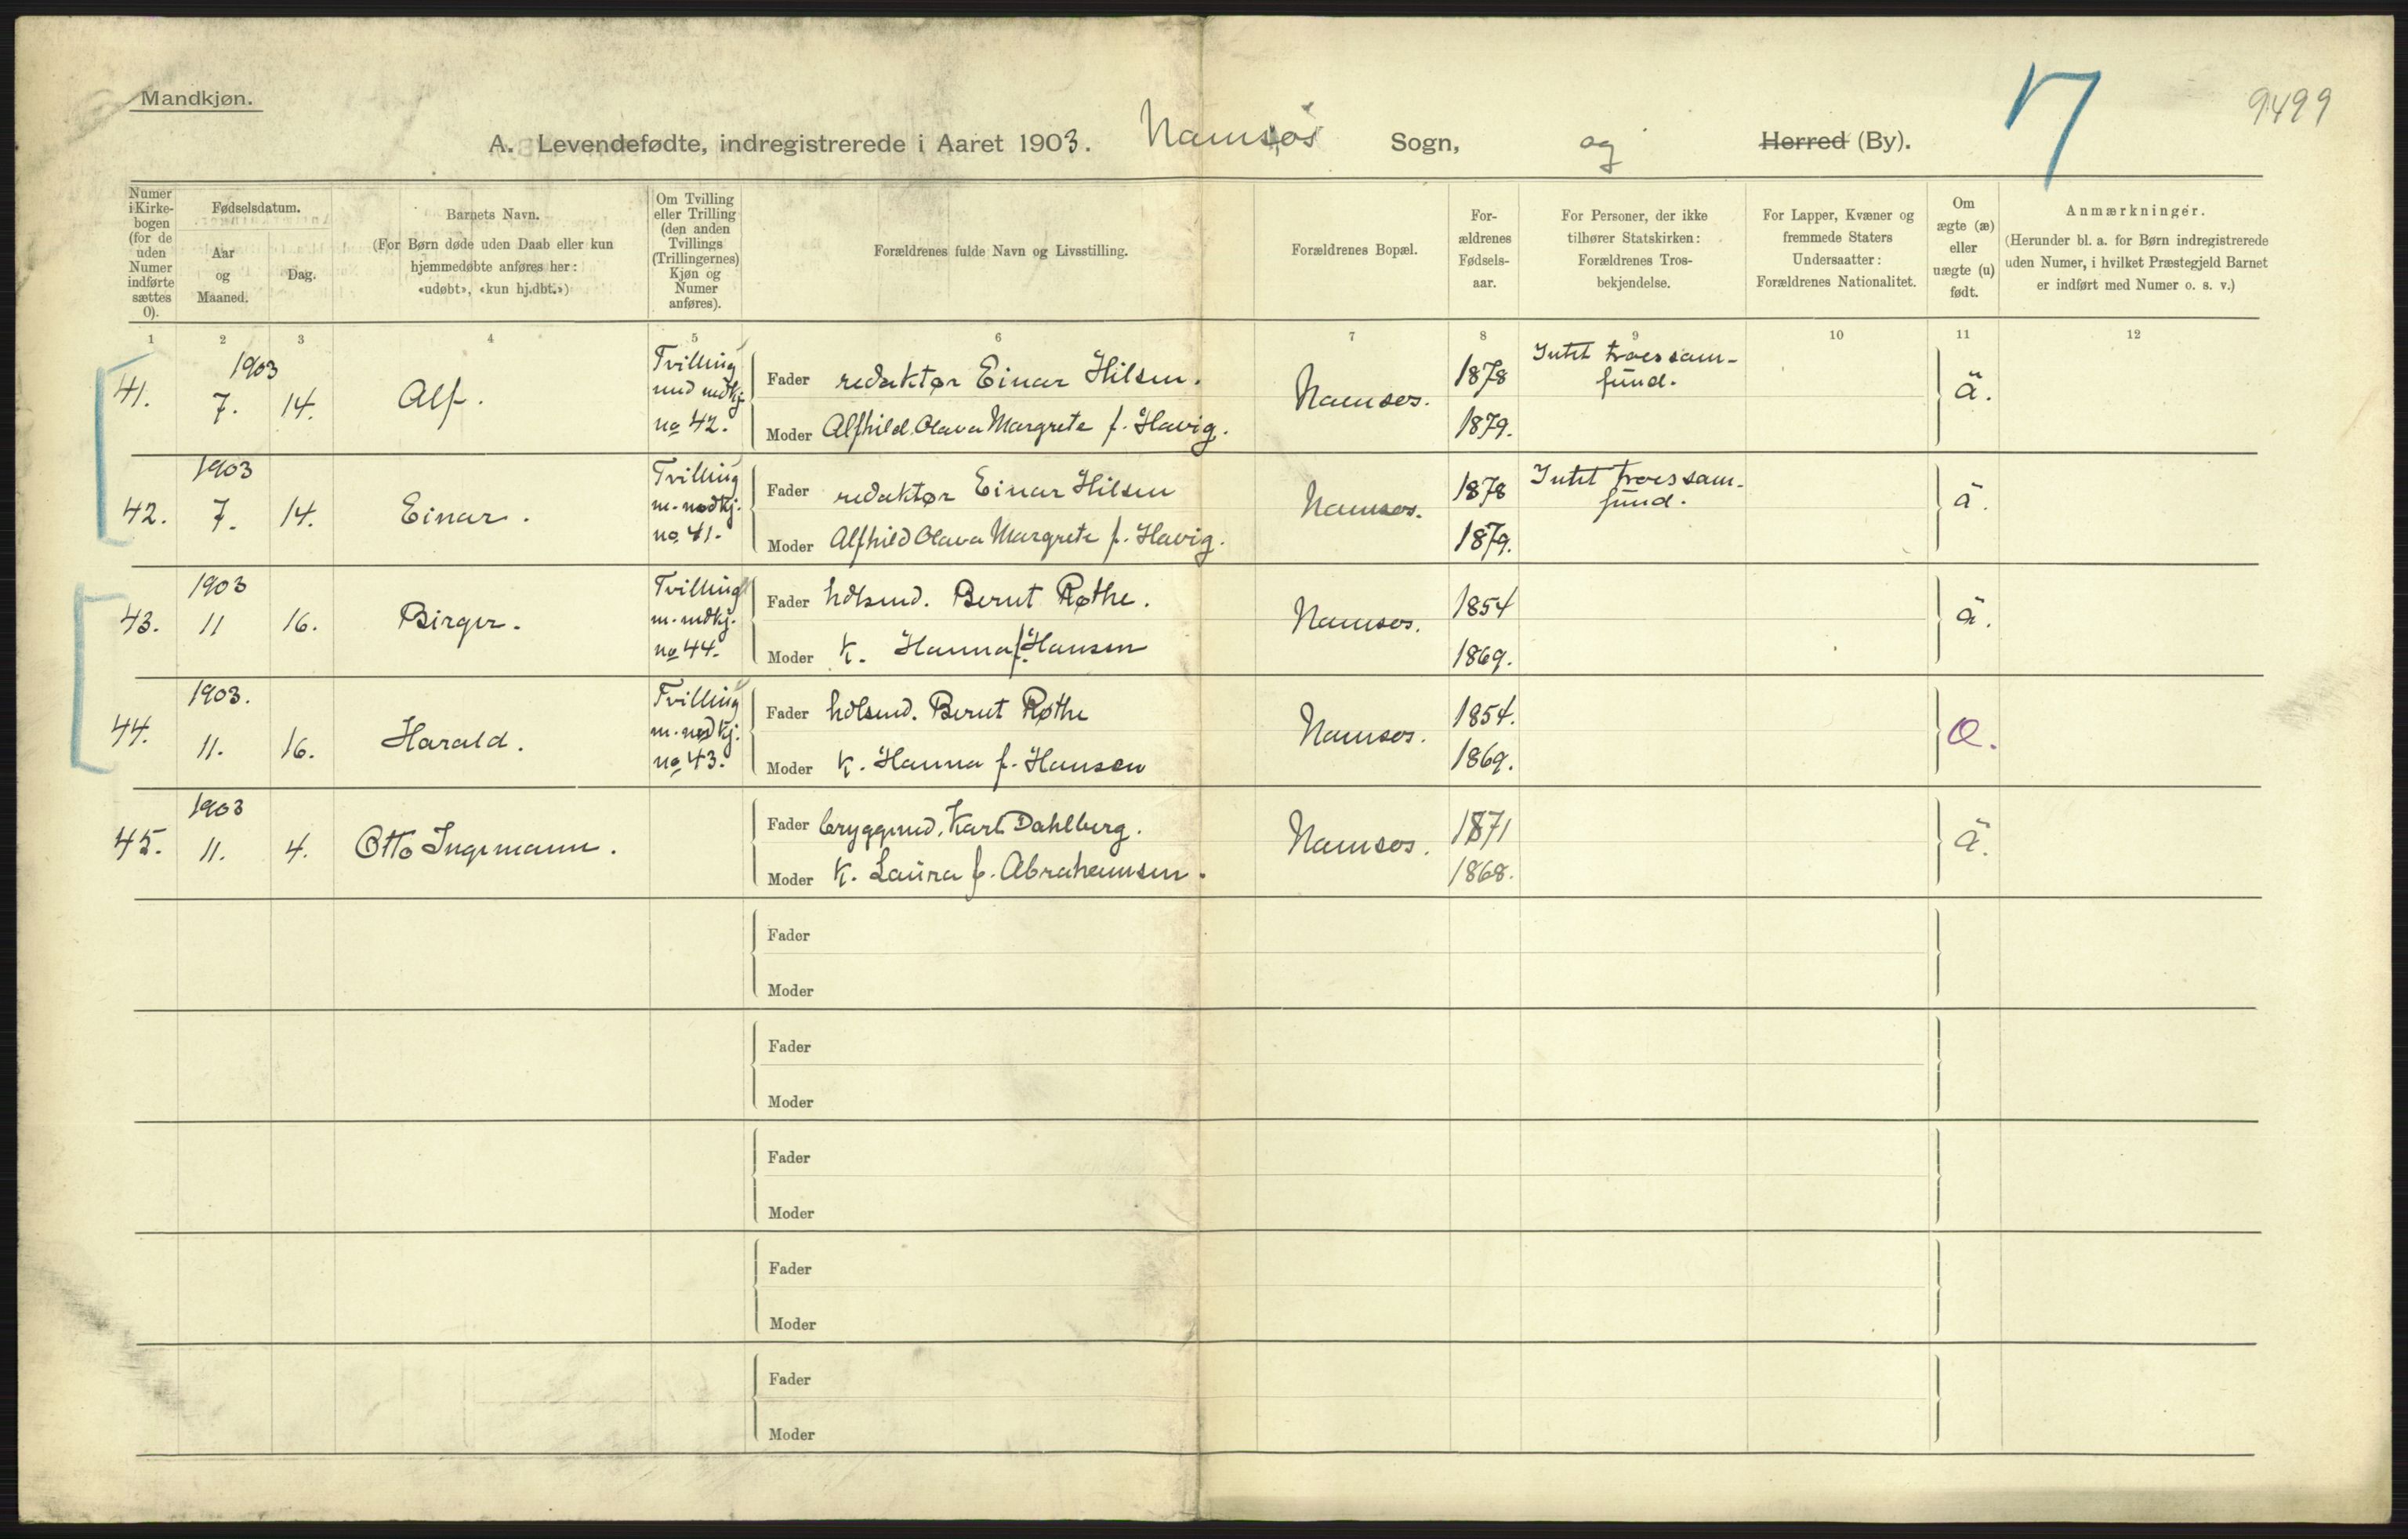 Mandkjøn.
9499
7
A. Levendefødte, indregistrerede i Aaret 1903. Namsos Sogn, og Herred (By).
Numer i Kirke-bogen (for de uden Numer indførte sættes 0).
Fødselsdatum.
Aar og Maaned.
Dag.
Barnets Navn.
(For Børn døde uden Daab eller kun hjemmedøbte anføres her: «udøbt», «kun hj.dbt.»)
Om Tvilling eller Trilling (den anden Tvillings (Trillingernes) Kjøn og Numer anføres).
Forældrenes fulde Navn og Livsstilling.
Forældrenes Bopæl.
For-ældrenes Fødsels-aar.
For Personer, der ikke tilhører Statskirken: Forældrenes Tros-bekjendelse.
For Lapper, Kvæner og fremmede Staters Undersaatter: Forældrenes Nationalitet.
Om ægte (æ) eller uægte (u) født.
Anmærkninger.
(Herunder bl. a. for Børn indregistrerede uden Numer, i hvilket Præstegjeld Barnet er indført med Numer o. s. v.)
1 2 3 4 5 6 7 8 9 10 11 12
41. 1903 7. 14. Alf. Tvilling med mdkj. no 42.
Fader redaktør Einar Hilsen. Namsos. 1878 Intet troessam-fund. ä.
Moder Alfhild Olava Margrete f. Havig. 1879.
42. 1903 7. 14. Einar. Tvilling m. mdkj. no. 41.
Fader redaktør Einar Hilsen Namsos. 1878 Intet troessam-fund. ä.
Moder Alfhild Olava Margrete f. Havig. 1879.
43. 1903 11 16. Birger. Tvilling m. mdkj. no 44.
Fader hdlsmd. Bernt Røthe. Namsos. 1854 ä.
Moder K. Hanna f. Hansen 1869.
44. 1903. 11. 16. Harald. Tvilling m. mdkj. no. 43.
Fader hdlsmd. Bernt Røthe Namsos. 1854.
Moder K. Hanna f. Hansen 1869.
45. 1903 11. 4. Otto Ingemann.
Fader bryggmd. Karl Dahlberg. Namsos. 1871 ä.
Moder K. Laura f. Abrahamsen. 1868.
Fader
Moder
Fader
Moder
Fader
Moder
Fader
Moder
Fader
Moder